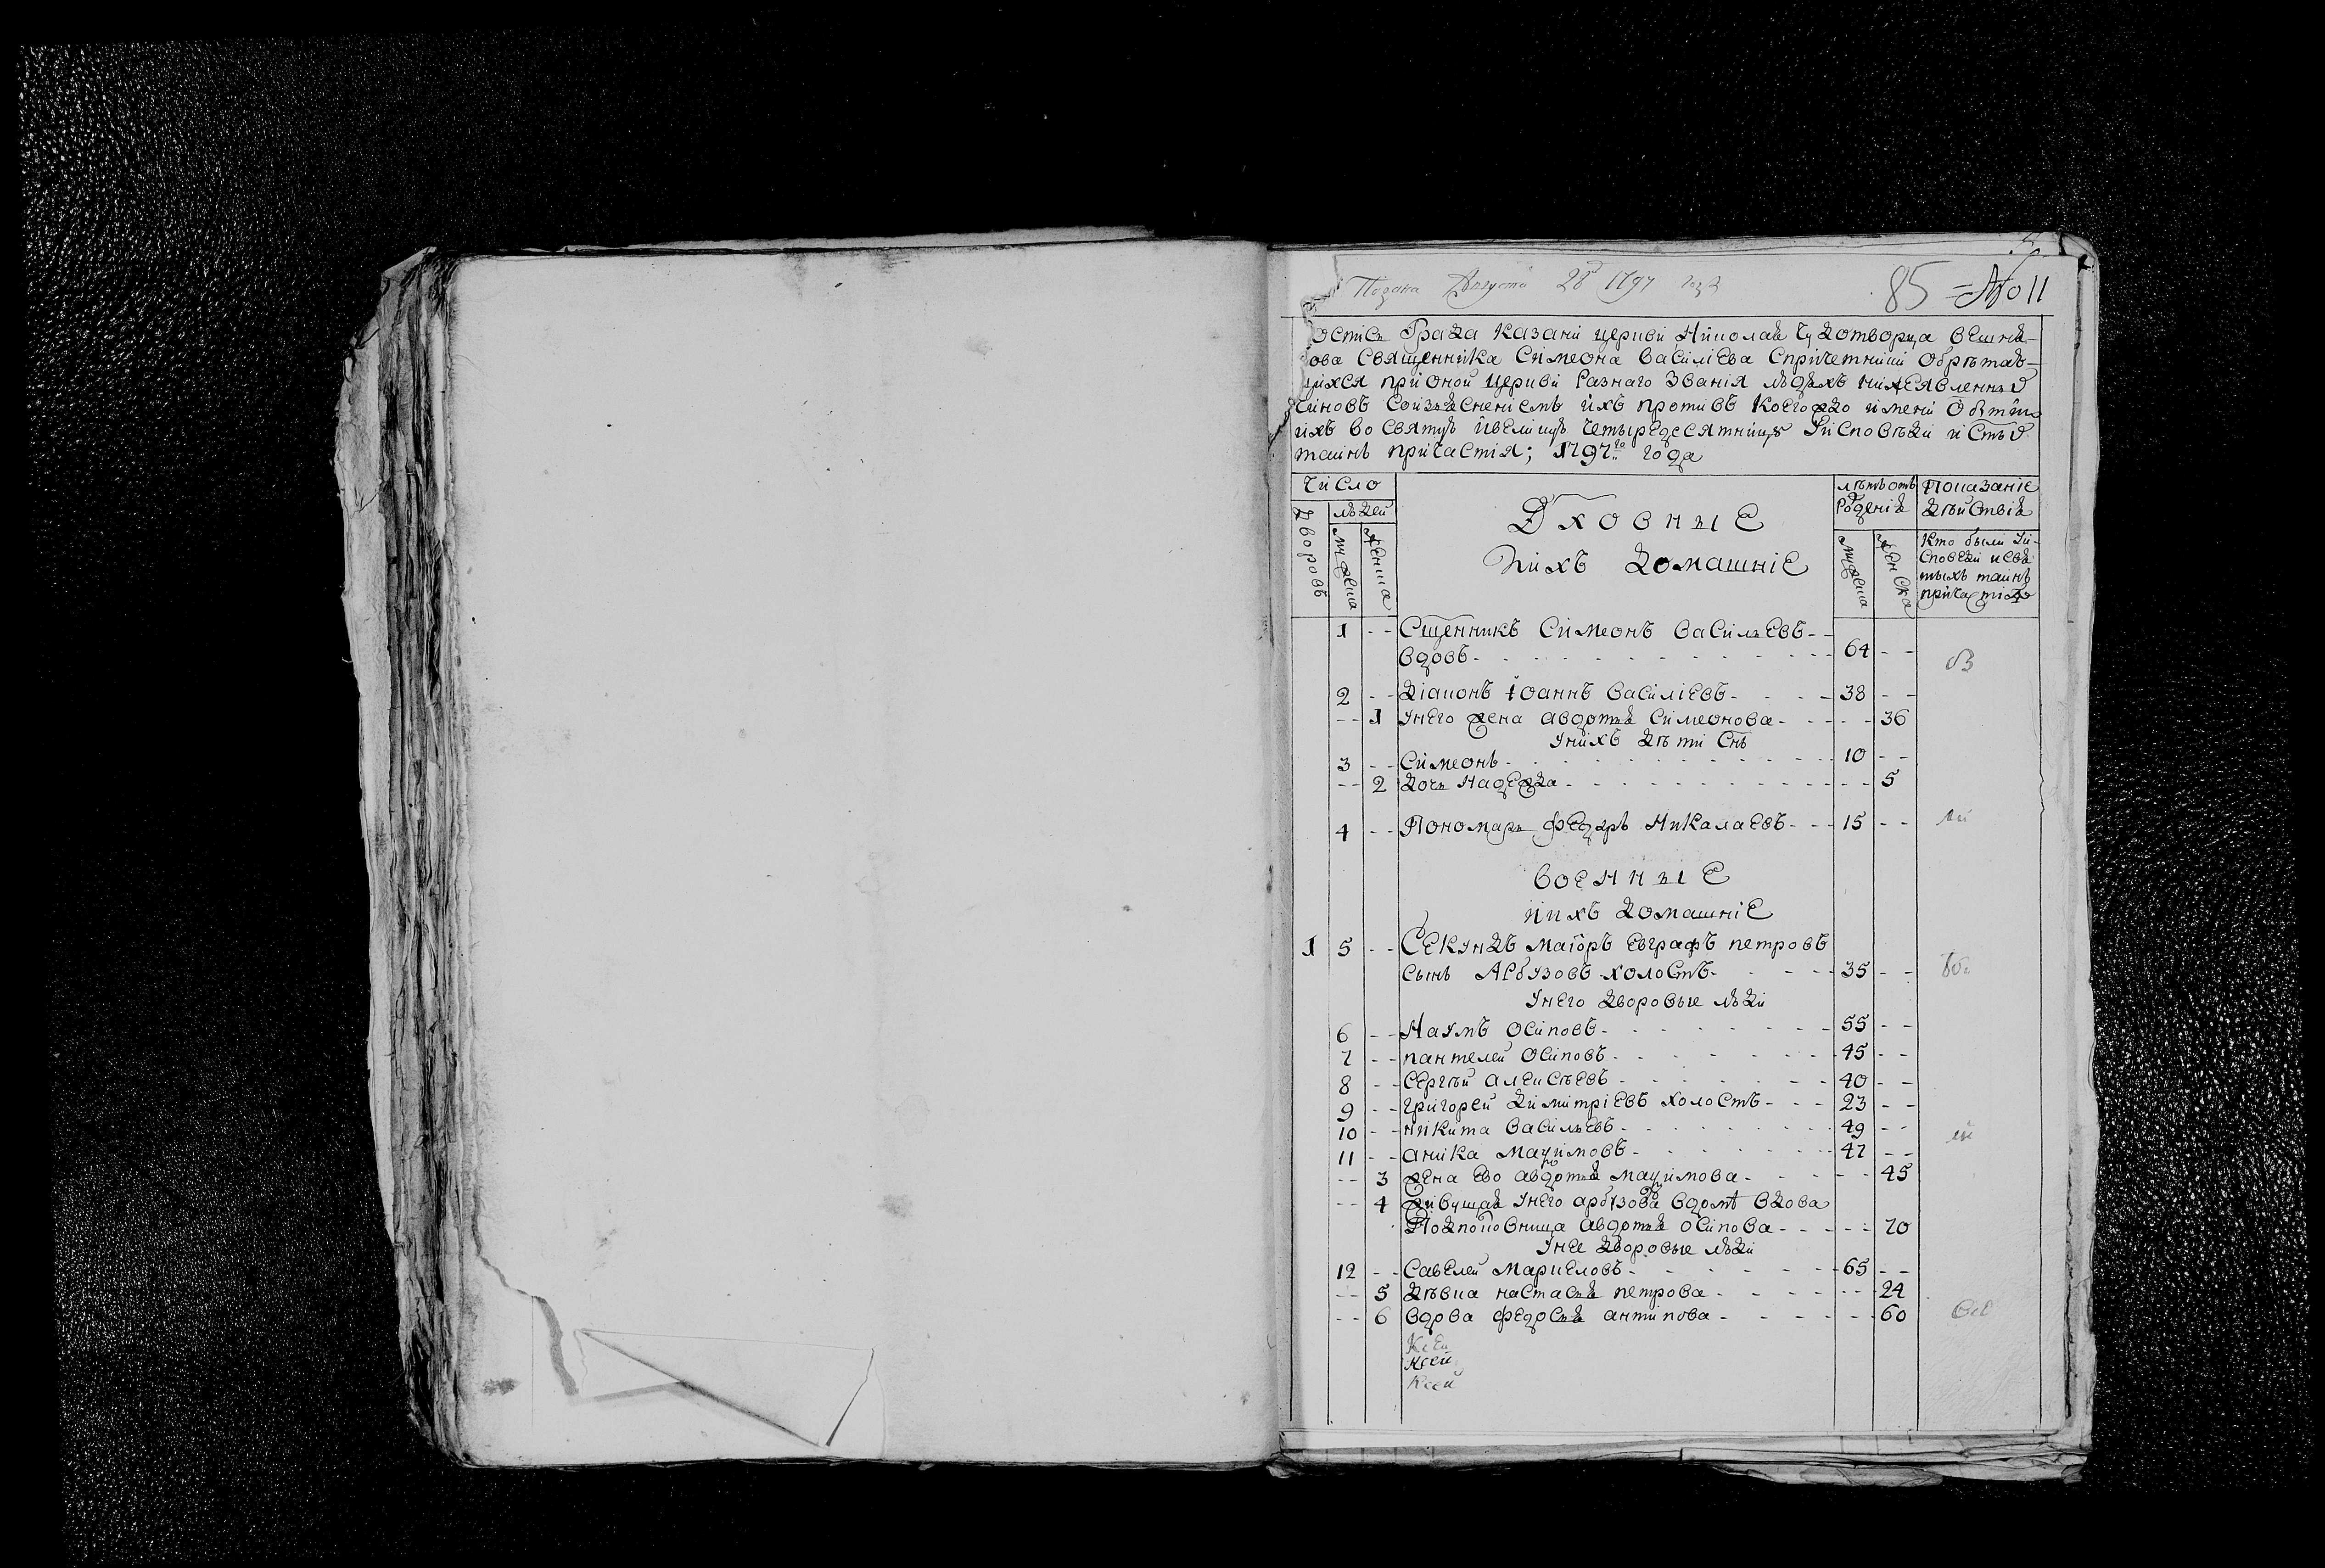 Подана Августа 28 1797 года
85 № 11
оспись Града Казани церкви Николая Чудотворца вешня-
кова Священника Симеона Василiева Спричетники Обрѣтаю-
щихся прионой Церкви Разнаго Званiя людехъ нижеявленных
Чиновъ Соизъяснениемъ ихъ противъ Коегождо имени Бытии
ихъ во святую ивеликую Четыредесятницу У Исповѣди и Стых
таинъ причастiя; 1797го года
Число
Дворовъ
людей
мужеска
женска
Дховныe
Иихъ Домашнiе
лѣтъ отъ Рожденiя
мужеска
женска
Показанiе Дѣйствiя
Кто были Уи-
споведи и Свя
тыхъ таинъ
причастiя
1 - - Сщенникъ Симеонъ Васильевъ - -
вдовъ - 64 - -
2 - - Дiаконъ Iоаннъ Василiевъ - 38 - -
- - 1 Унего жена авдотья Симеонова - - - 36
Унихъ дѣти Снъ
3 - - Симеонъ - 10 - -
- - 2 Дочь Надежда - - - 5
4 - - Пономарь Федоръ Николаевъ - 15 - -
Военные
иихъ Домашнiе
1 5 - - Секундъ маiоръ Евграфъ петровъ
сынъ Арбузовъ холостъ - 35 - -
Унего дворовые люди
6 - - Наумъ Осиповъ - 55 - -
7 - - пантелей Осиповъ - 45 - -
8 - - Сергѣй алексѣевъ - 40 - -
9 - - григорей Димитрiевъ холостъ - 23 - -
10 - - никита Васильевъ - 49 - -
11 - - аника Макимовъ - 47 - -
- - 3 жена Ево авдотья макимова - - - 45
- - 4 живущая Унего арбузова вдомѣ вдова
Подполковница авдотья осипова - - - 70
Унее дворовые люди
12 - - Савелей Маркеловъ - 65 - -
- - 5 Дѣвка настасья петрова - - - 24
- - 6 вдова федосья антипова - - - 60
Ксей
Ксей
Ксей